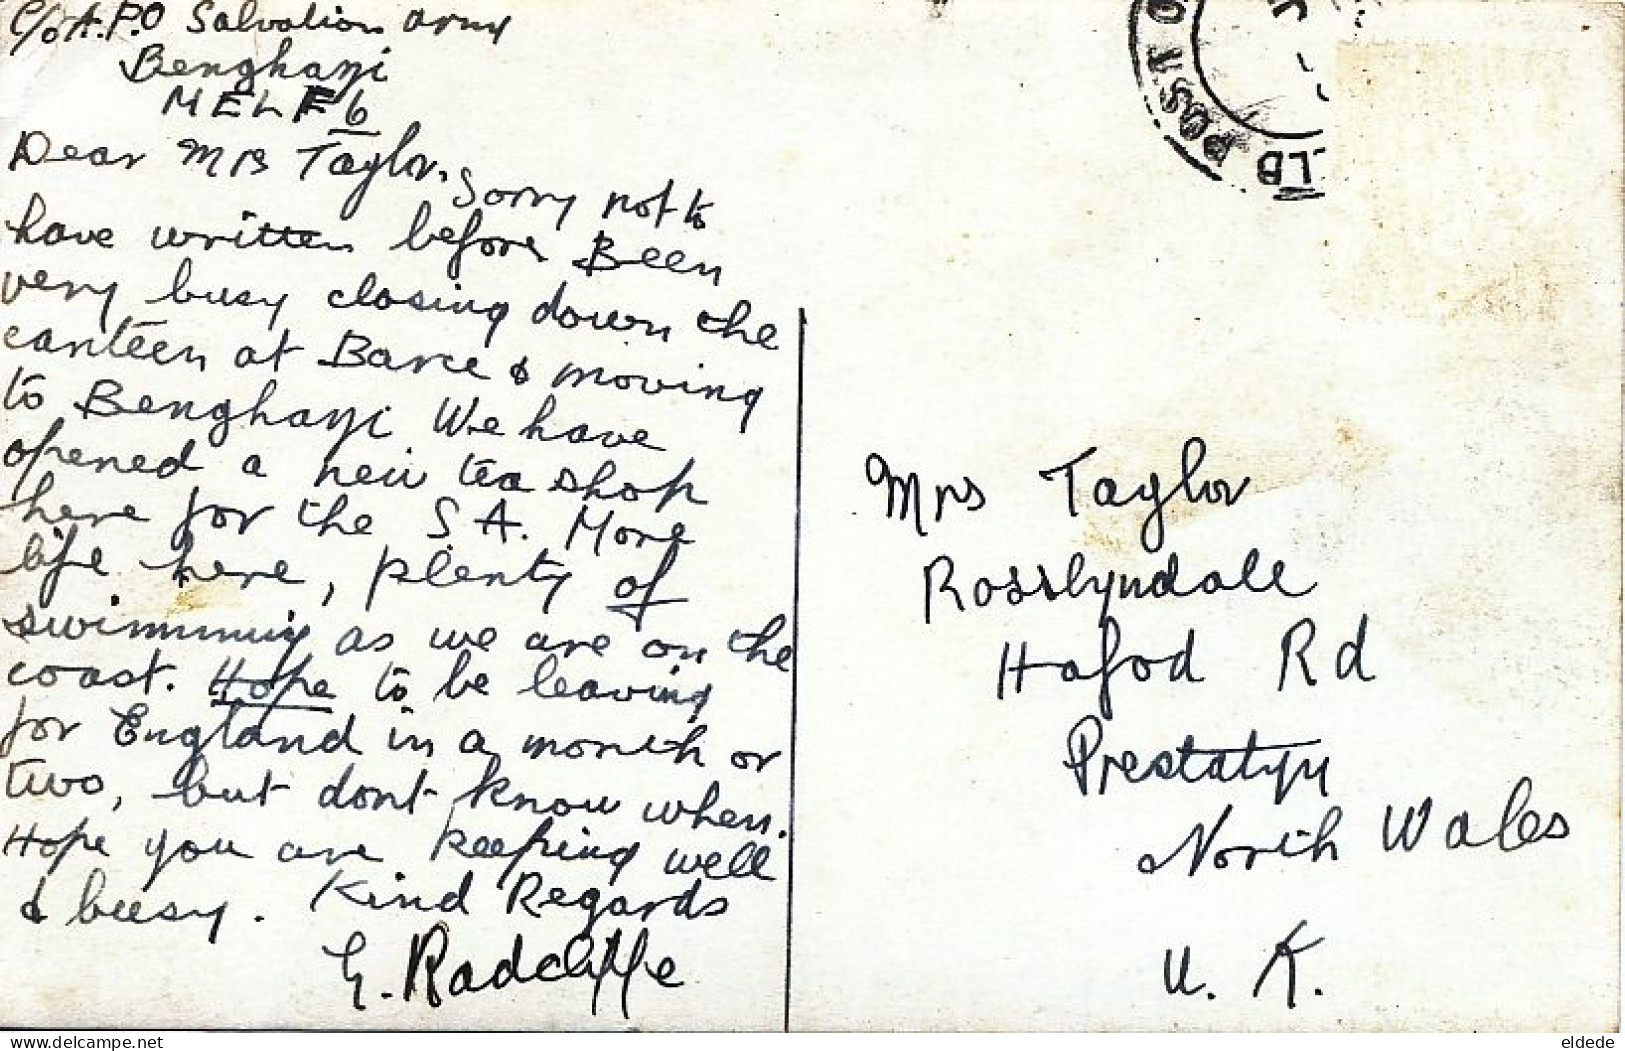 C/o A.P.O Salvation army
Benghazi
MELF 6
Dear Mrs Taylor,
Sorry not to
have written before Been
very busy closing down the
canteen at Barce & moving
to Benghazi. We have
opened a new tea shop
here for the S.A. More
life here, plenty of
swimming as we are on the
coast. Hope to be leaving
for England in a month or
two, but dont know when.
Hope you are keeping well
& busy. Kind Regards
G. Radcliffe
POST O
LD
Mrs Taylor
Rosslyndale
Hafod Rd
Prestatyn
North Wales
U. K.
www.delcampe.net
eldede